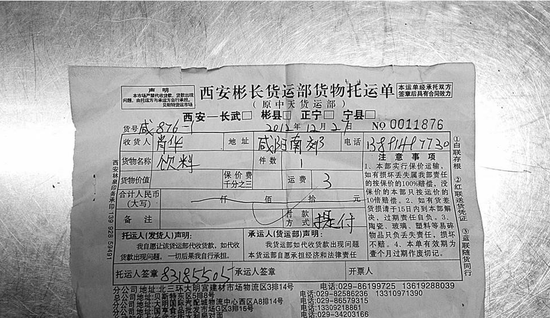 声明
本市场严禁代收货款，货款出现
问题，由托运方与承运方自行
承担。
西安彬长货运部货物托运单
（原中天货运部）
本运单经承托双方
签章后具有合同效力
西安——长武□ 彬县□ 正宁□ 宁县□
货号 咸876-1 2012年12月2日 NO 0011876
收货人 肖华 地址 咸阳南郊 13891497730
货物名称 饮料 件数 1
货物价值 保价费 千分之三 运费 3
合计人民币
（大写） 仟 佰 元
备注 付款方式 提付
注意事项
1．本部实行保价运输，
如有损坏丢失属我部责任
的按保价的100%赔偿，没
保价的本部只按运价的
10倍赔偿。2．如有货差
货损请于15日内到本部解
决，过期责任自负。3．
陶瓷、玻璃、塑料等易碎
物品只负丢失责任，损坏
不赔。4．本单有效期为
壹个月过期作废切记。
托运人（发货人）声明：
我自愿让该货运部代收货款，如代收
货款出现问题，一切后果由我自行承担。
承运人（货运部）声明：
我货运部如代收货款出现问题
本货运部自愿承担经济和法律责任
托运人签章 83185505 承运人签章 开票人
①白联存根 ②红联送货凭证 ③蓝联随货同行
分公司地址：北三环大明宫建材市场物流区3排14号 电话：029-86199725 13619288039
电话：029-82586236 13310971390
物流中心西区A8排14号 电话：029-86579315
电话：029-34203166